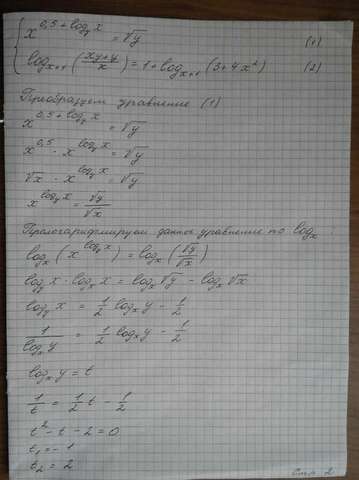 x^{0,5 + log_y x} = √y (1)
log_{x+1} ((xy+y)/x) = 1 + log_{x+1} (3+4x²) (2)
Преобразуем уравнение (1)
x^{0,5 + log_y x} = √y
x^{0,5} · x^{log_y x} = √y
√x · x^{log_y x} = √y
x^{log_y x} = √y/√x
Прологарифмируем данное уравнение по log_x
log_x (x^{log_y x}) = log_x (√y/√x)
log_y x · log_x x = log_x √y − log_x √x
log_y x = 1/2 log_x y − 1/2
1/log_x y = 1/2 log_x y − 1/2
log_x y = t
1/t = 1/2 t − 1/2
t² − t − 2 = 0
t₁ = − 1
t₂ = 2
Стр. 2